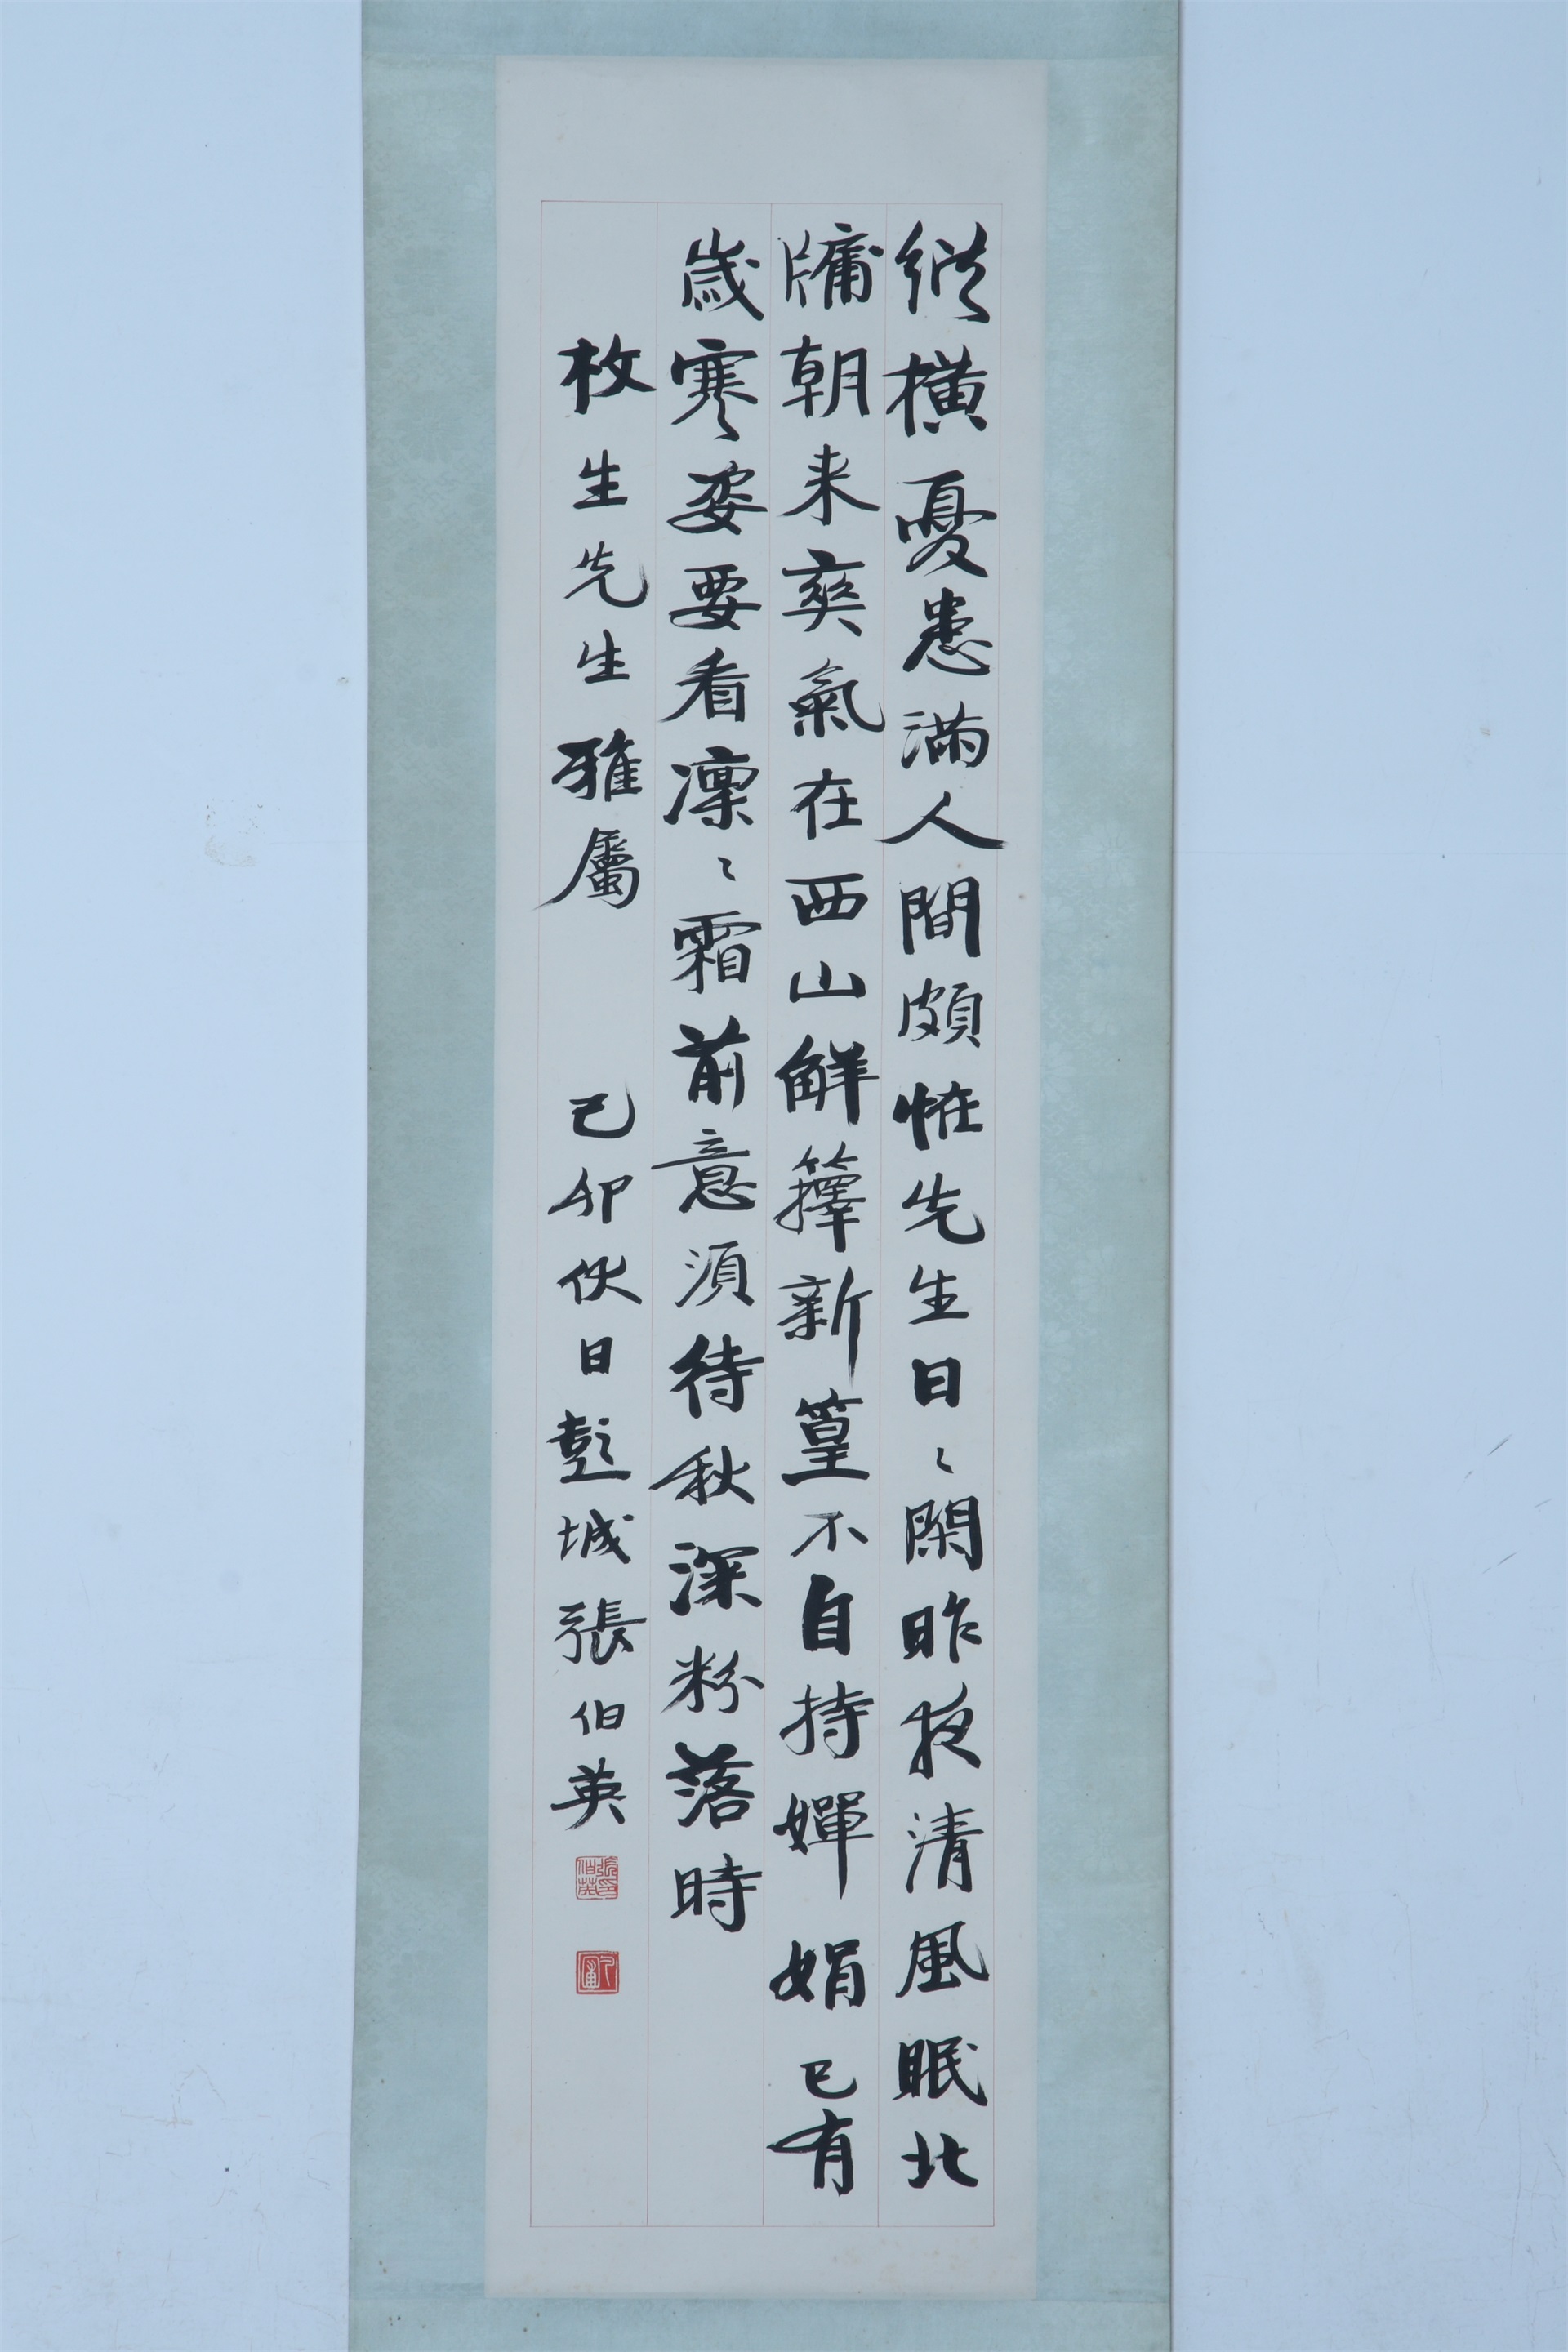 縱橫憂患滿人間頗怪先生日〻閑昨夜清風眠北
牖朝来爽氣在西山解籜新篁不自持嬋娟已有
歲寒姿要看凜〻霜前意須待秋深粉落時
枚生先生雅屬 己卯伏日彭城張伯英
張伯英印